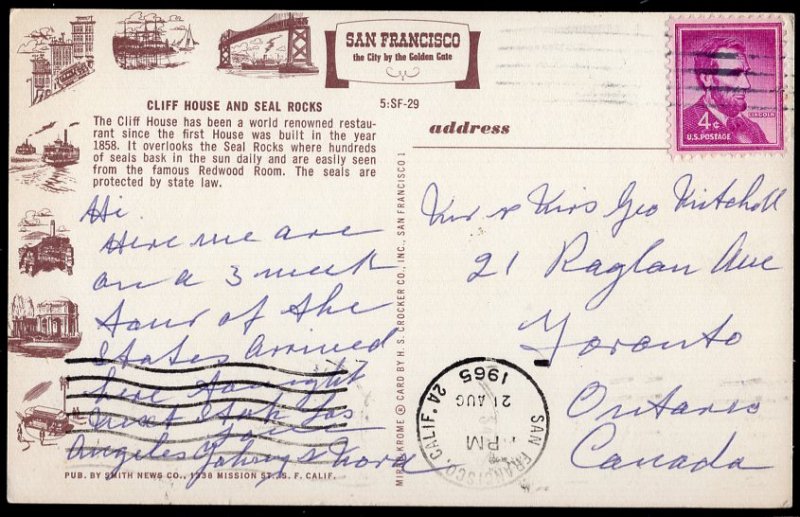 SAN FRANCISCO
the City by the Golden Gate
CLIFF HOUSE AND SEAL ROCKS
5:SF-29
The Cliff House has been a world renowned restau-
rant since the first House was built in the year
1858. It overlooks the Seal Rocks where hundreds
of seals bask in the sun daily and are easily seen
from the famous Redwood Room. The seals are
protected by state law.
Hi
Here we are
on a 3 week
tour of the
States Arrived
here tonight
next stop Los
Angeles
Love
Johnny & Nora
PUB. BY SMITH NEWS CO., 1538 MISSION ST., S. F. CALIF.
KROME ® CARD BY H. S. CROCKER CO., INC., SAN FRANCISCO 1
address
4¢
LINCOLN
U.S. POSTAGE
Mr & Mrs Geo Mitchell
21 Raglan Ave
Toronto
Ontario
Canada
SAN FRANCISCO, CALIF.
PM
21 AUG
1965